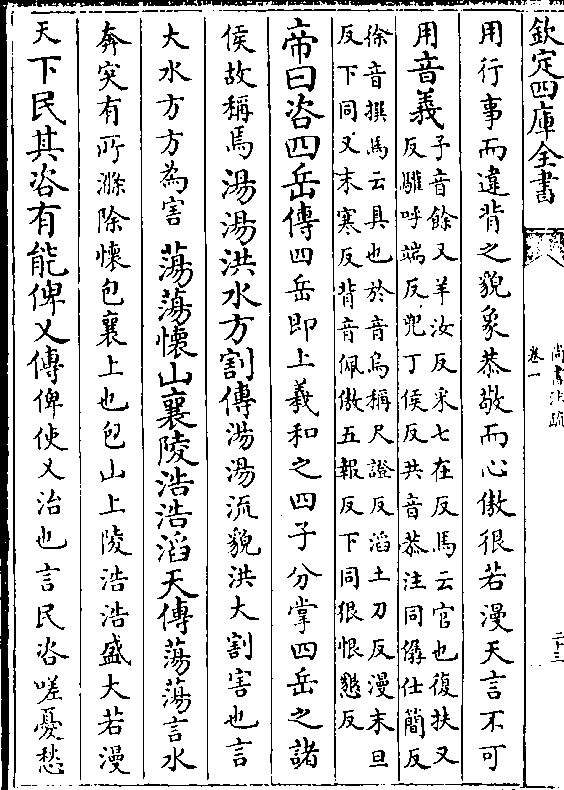 欽定四庫全書
尚書注疏
卷一
二十三
用行事而違背之貌象恭敬而心傲很若漫天言不可
用音義子音餘又羊汝反采七在反馬云官也復扶又
反驩呼端反兜丁侯反共音恭注同僝仕簡反
徐音撰馬云具也於音烏稱尺證反滔土刀反漫末旦
反下同又末寒反背音佩傲五報反下同很恨懇反
帝曰咨四岳傳四岳即上羲和之四子分掌四岳之諸
侯故稱焉湯湯洪水方割傳湯湯流貌洪大割害也言
大水方方為害蕩蕩懷山襄陵浩浩滔天傳蕩蕩言水
奔突有所滌除懷包襄上也包山上陵浩浩盛大若漫
天下民其咨有能俾乂傳俾使乂治也言民咨嗟憂愁